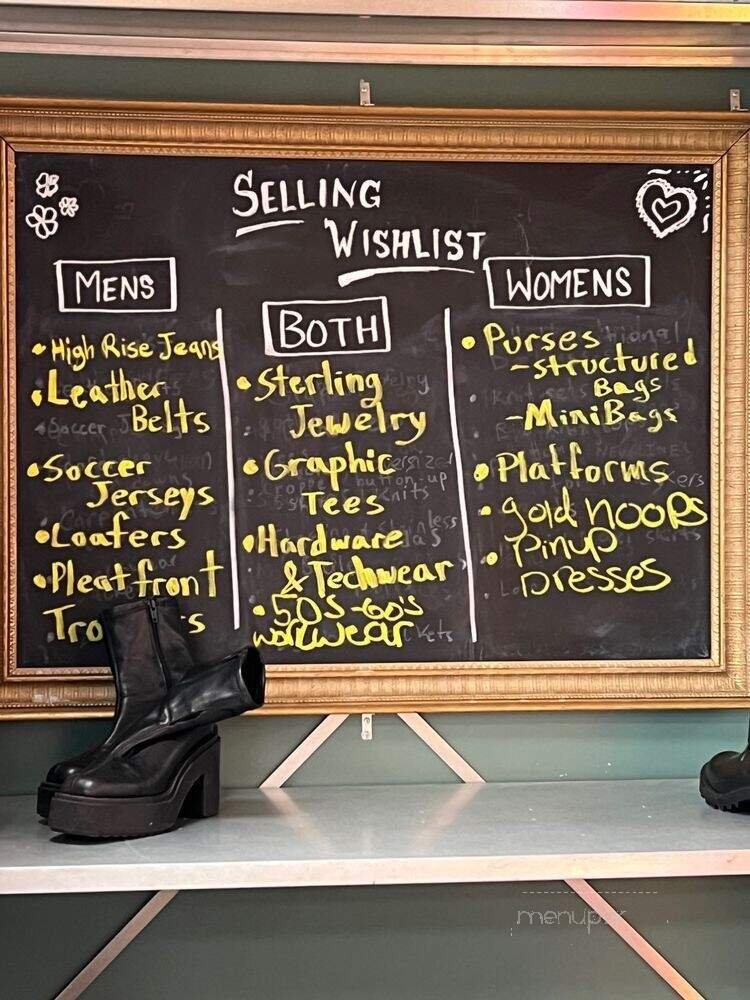 SELLING
WISHLIST
MENS
• High Rise Jeans
• Leather
Belts
• Soccer
Jerseys
• Loafers
• Pleat front
BOTH
• Sterling
Jewelry
• Graphic
Tees
• Hardware
& Techwear
• 50s-60's
workwear
WOMENS
• Purses
- structured
Bags
- Mini Bags
• Platforms
• gold hoops
• Pinup
Dresses